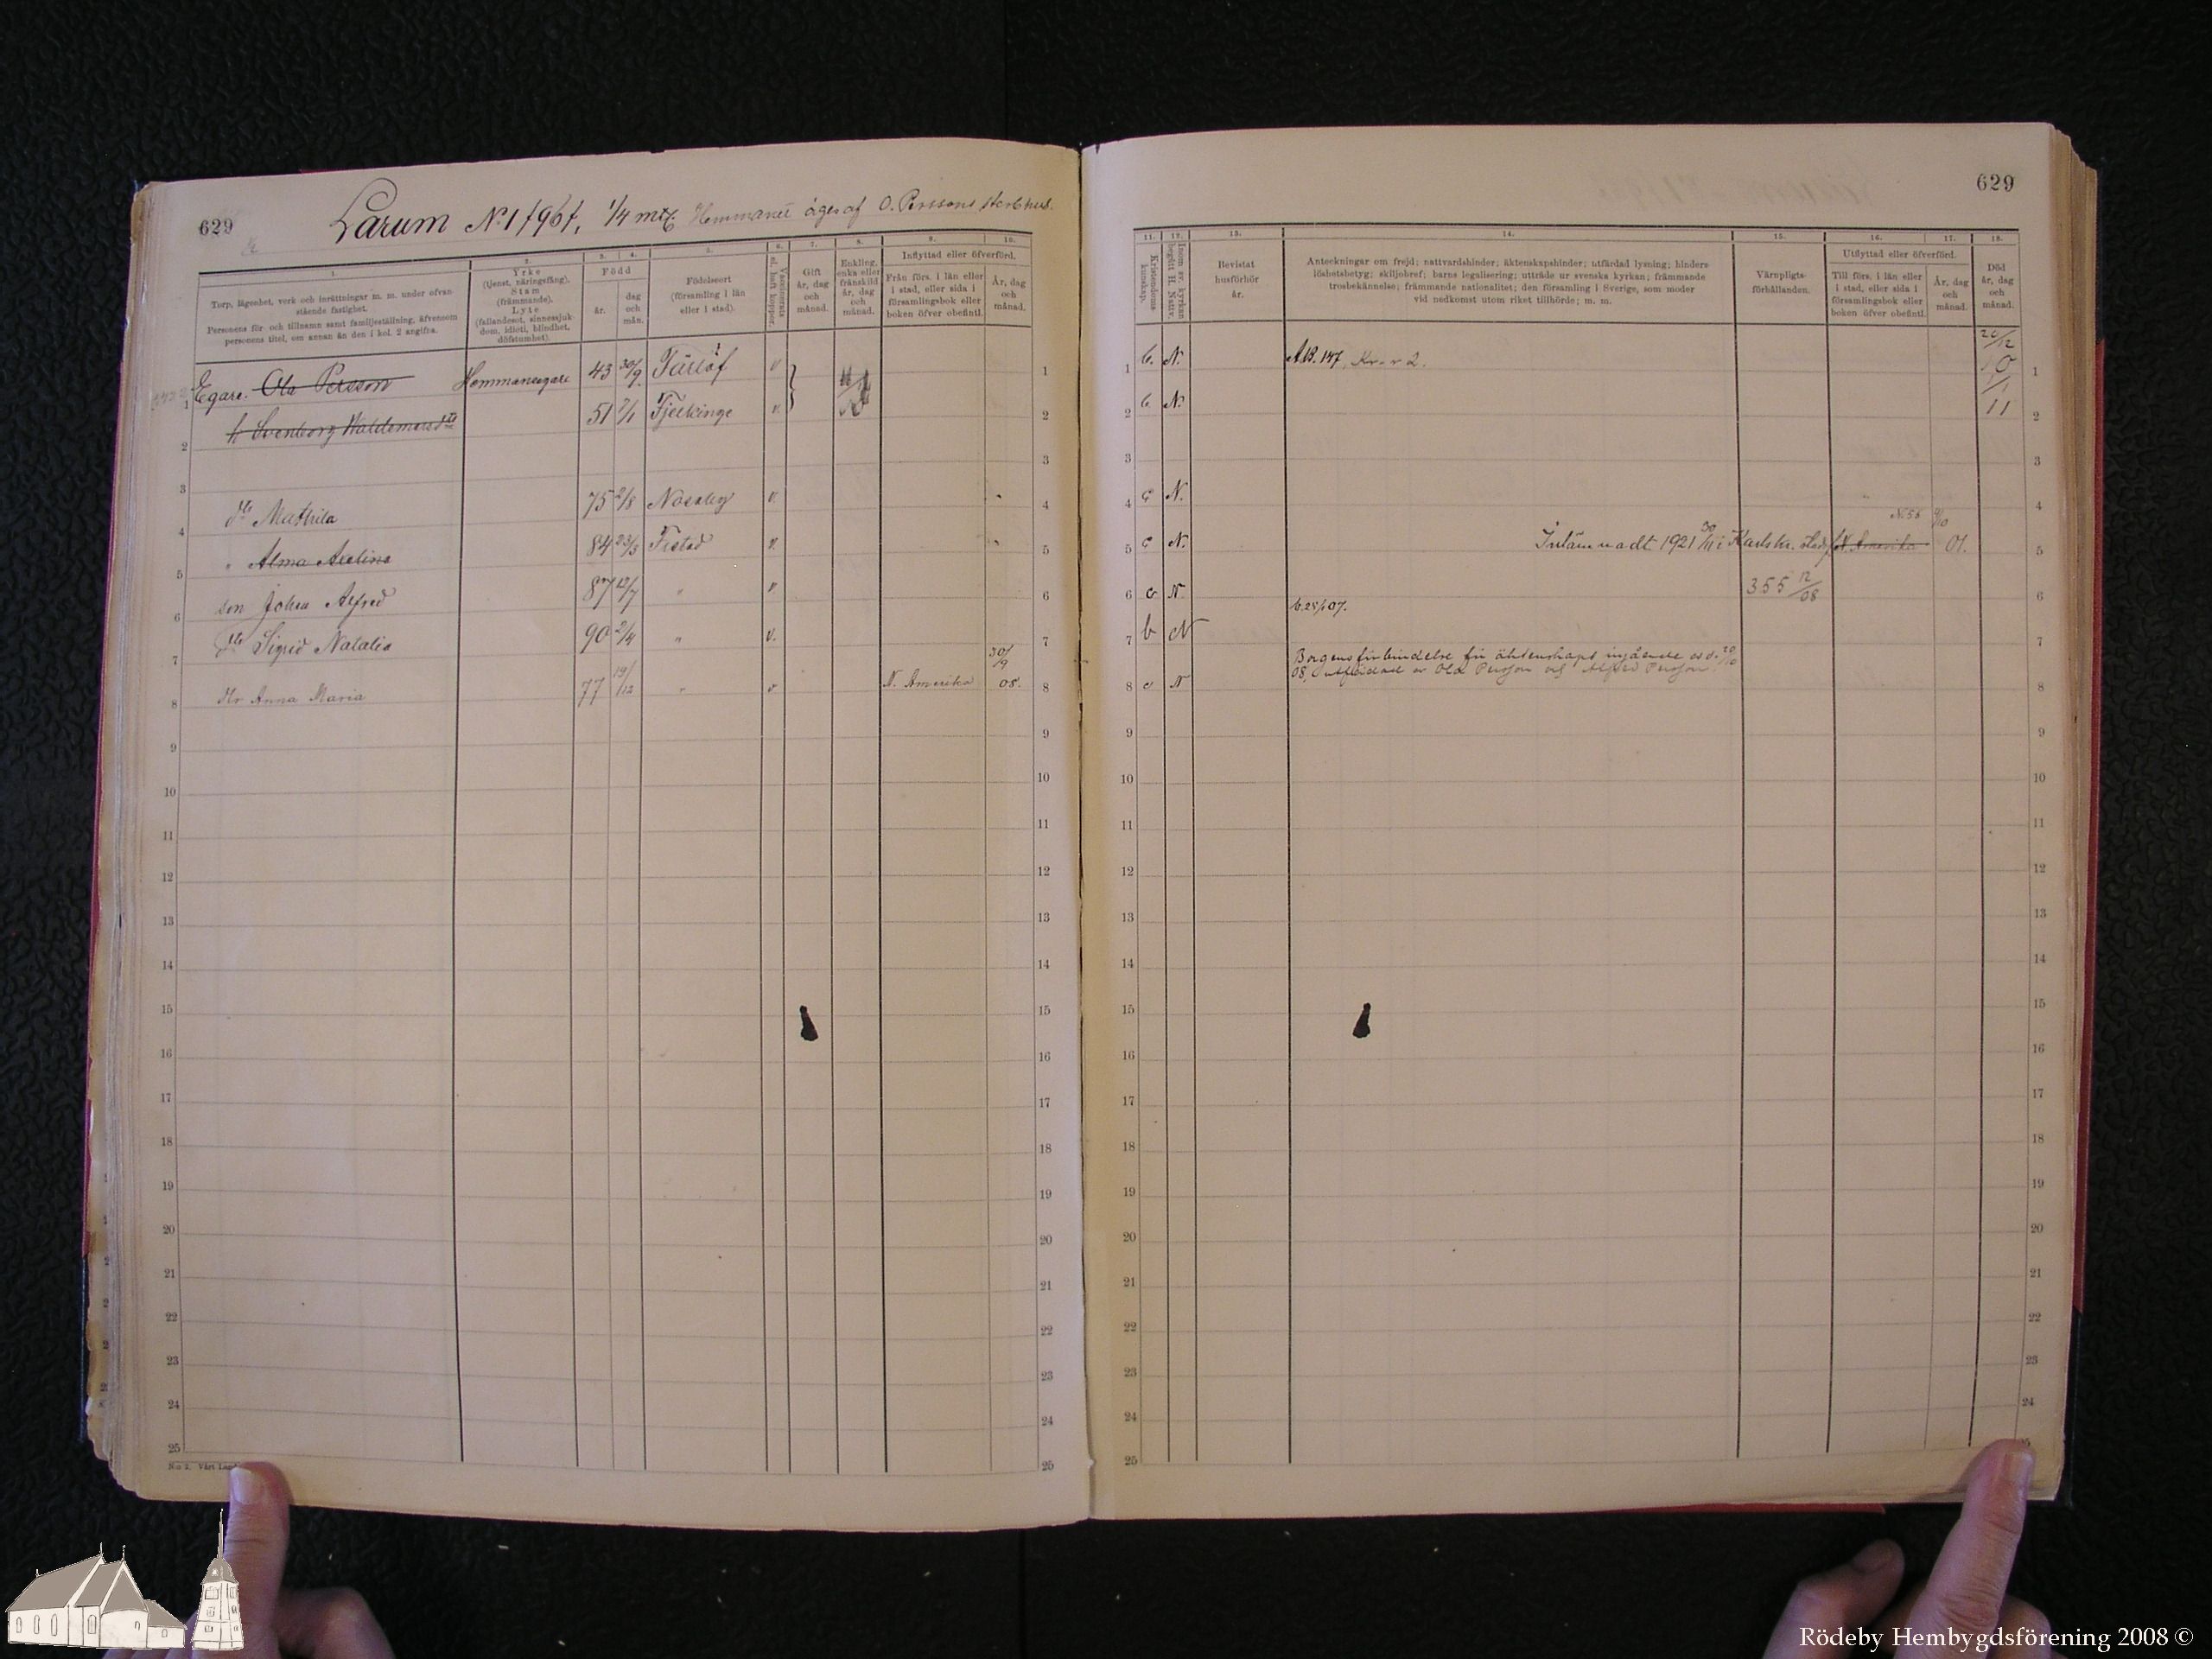 629
Larum No 1 f 96 f, 1/4 mtl. Hemmanet äges af O. Perssons sterbhus.
1. 2. 3. 4. 5. 6. 7. 8. 9. 10.
Torp, lägenhet, verk och inrättningar m. m. under ofvan-
stående fastighet.
Personens för- och tillnamn samt familjeställning, äfvensom
personens titel, om annan än den i kol. 2 angifna.
Yrke
(tjenst, näringsfång).
Stam
(främmande).
Lyte
(fallandesot, sinnessjuk-
dom, idioti, blindhet,
döfstumhet).
Född
år.
dag
och
mån.
Födelseort
(församling i län
eller i stad).
Vaccinerats
el. haft koppor.
Gift
år, dag
och
månad.
Enkling,
enka eller
frånskild
år, dag
och
månad.
Inflyttad eller öfverförd.
Från förs. i län eller
i stad, eller sida i
församlingsbok eller
boken öfver obefintl.
År, dag
och
månad.
Egare. Ola Persson Hemmansegare 43 30/9 Färlöf v.
h. Svenborg Waldemarsdtr 51 7/1 Fjelkinge v.
dtr Mathilda 75 2/8 Nosaby v.
" Alma Axelina 84 23/3 Fristad v.
son Johan Alfred 87 12/7 " v.
dtr Sigrid Natalia 90 2/4 " v.
dtr Anna Maria 77 19/12 " v. N. Amerika 30/9 08.
1
2
3
4
5
6
7
8
9
10
11
12
13
14
15
16
17
18
19
20
21
22
23
24
25
629
11. 12. 13. 14. 15. 16. 17. 18.
Kristendoms-
kunskap.
Inom sv. kyrkan
begått H. Nattv.
Bevistat
husförhör
år.
Anteckningar om frejd; nattvardshinder; äktenskapshinder; utfärdad lysning; hinders-
löshetsbetyg; skiljobref; barns legalisering; utträde ur svenska kyrkan; främmande
trosbekännelse; främmande nationalitet; den församling i Sverige, som moder
vid nedkomst utom riket tillhörde; m. m.
Värnpligts-
förhållanden.
Utflyttad eller öfverförd.
Till förs. i län eller
i stad, eller sida i
församlingsbok eller
boken öfver obefintl.
År, dag
och
månad.
Död
år, dag
och
månad.
b. N. A.B. 147. 20/12 10
b. N. 1/1 11
c N.
c N. Inlämnadt 1921 30/11 i Karlskr. stadsf. N. Amerika 01.
No 58
c N. 355 12/08
b N b. 25/1 07.
c N Borgensförbindelse för äktenskaps ingående
08, utfärdad av Ola Persson och Alfred Persson
1
2
3
4
5
6
7
8
9
10
11
12
13
14
15
16
17
18
19
20
21
22
23
24
25
Rödeby Hembygdsförening 2008 ©